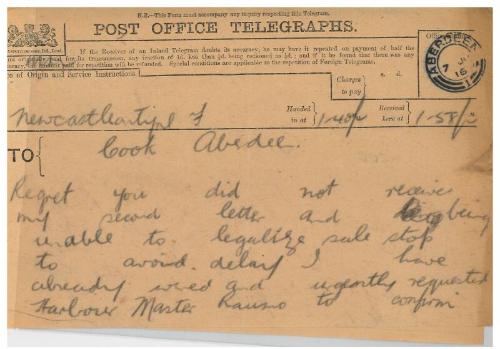 N.B.—This Form must accompany any inquiry respecting this Telegram.
POST OFFICE TELEGRAPHS.
If the Receiver of an Inland Telegram doubts its accuracy, he may have it repeated on payment of half the
for its transmission, any fraction of 1d. less than ½d. being reckoned as ½d.; and if it be found that there was any
amount paid for repetition will be refunded. Special conditions are applicable to the repetition of Foreign Telegrams.
ABERDEEN
7
16
e of Origin and Service Instructions.
Charges
to pay
s. d.
Handed
in at
Received
here at
Newcastle on Tyne
1·40
1·58
TO
Cook Aberdee.
Regret you did not receive
my second letter and being
unable to legalize sale stop
to avoid delay I have
already wired and urgently requested
Harbour Master to confirm